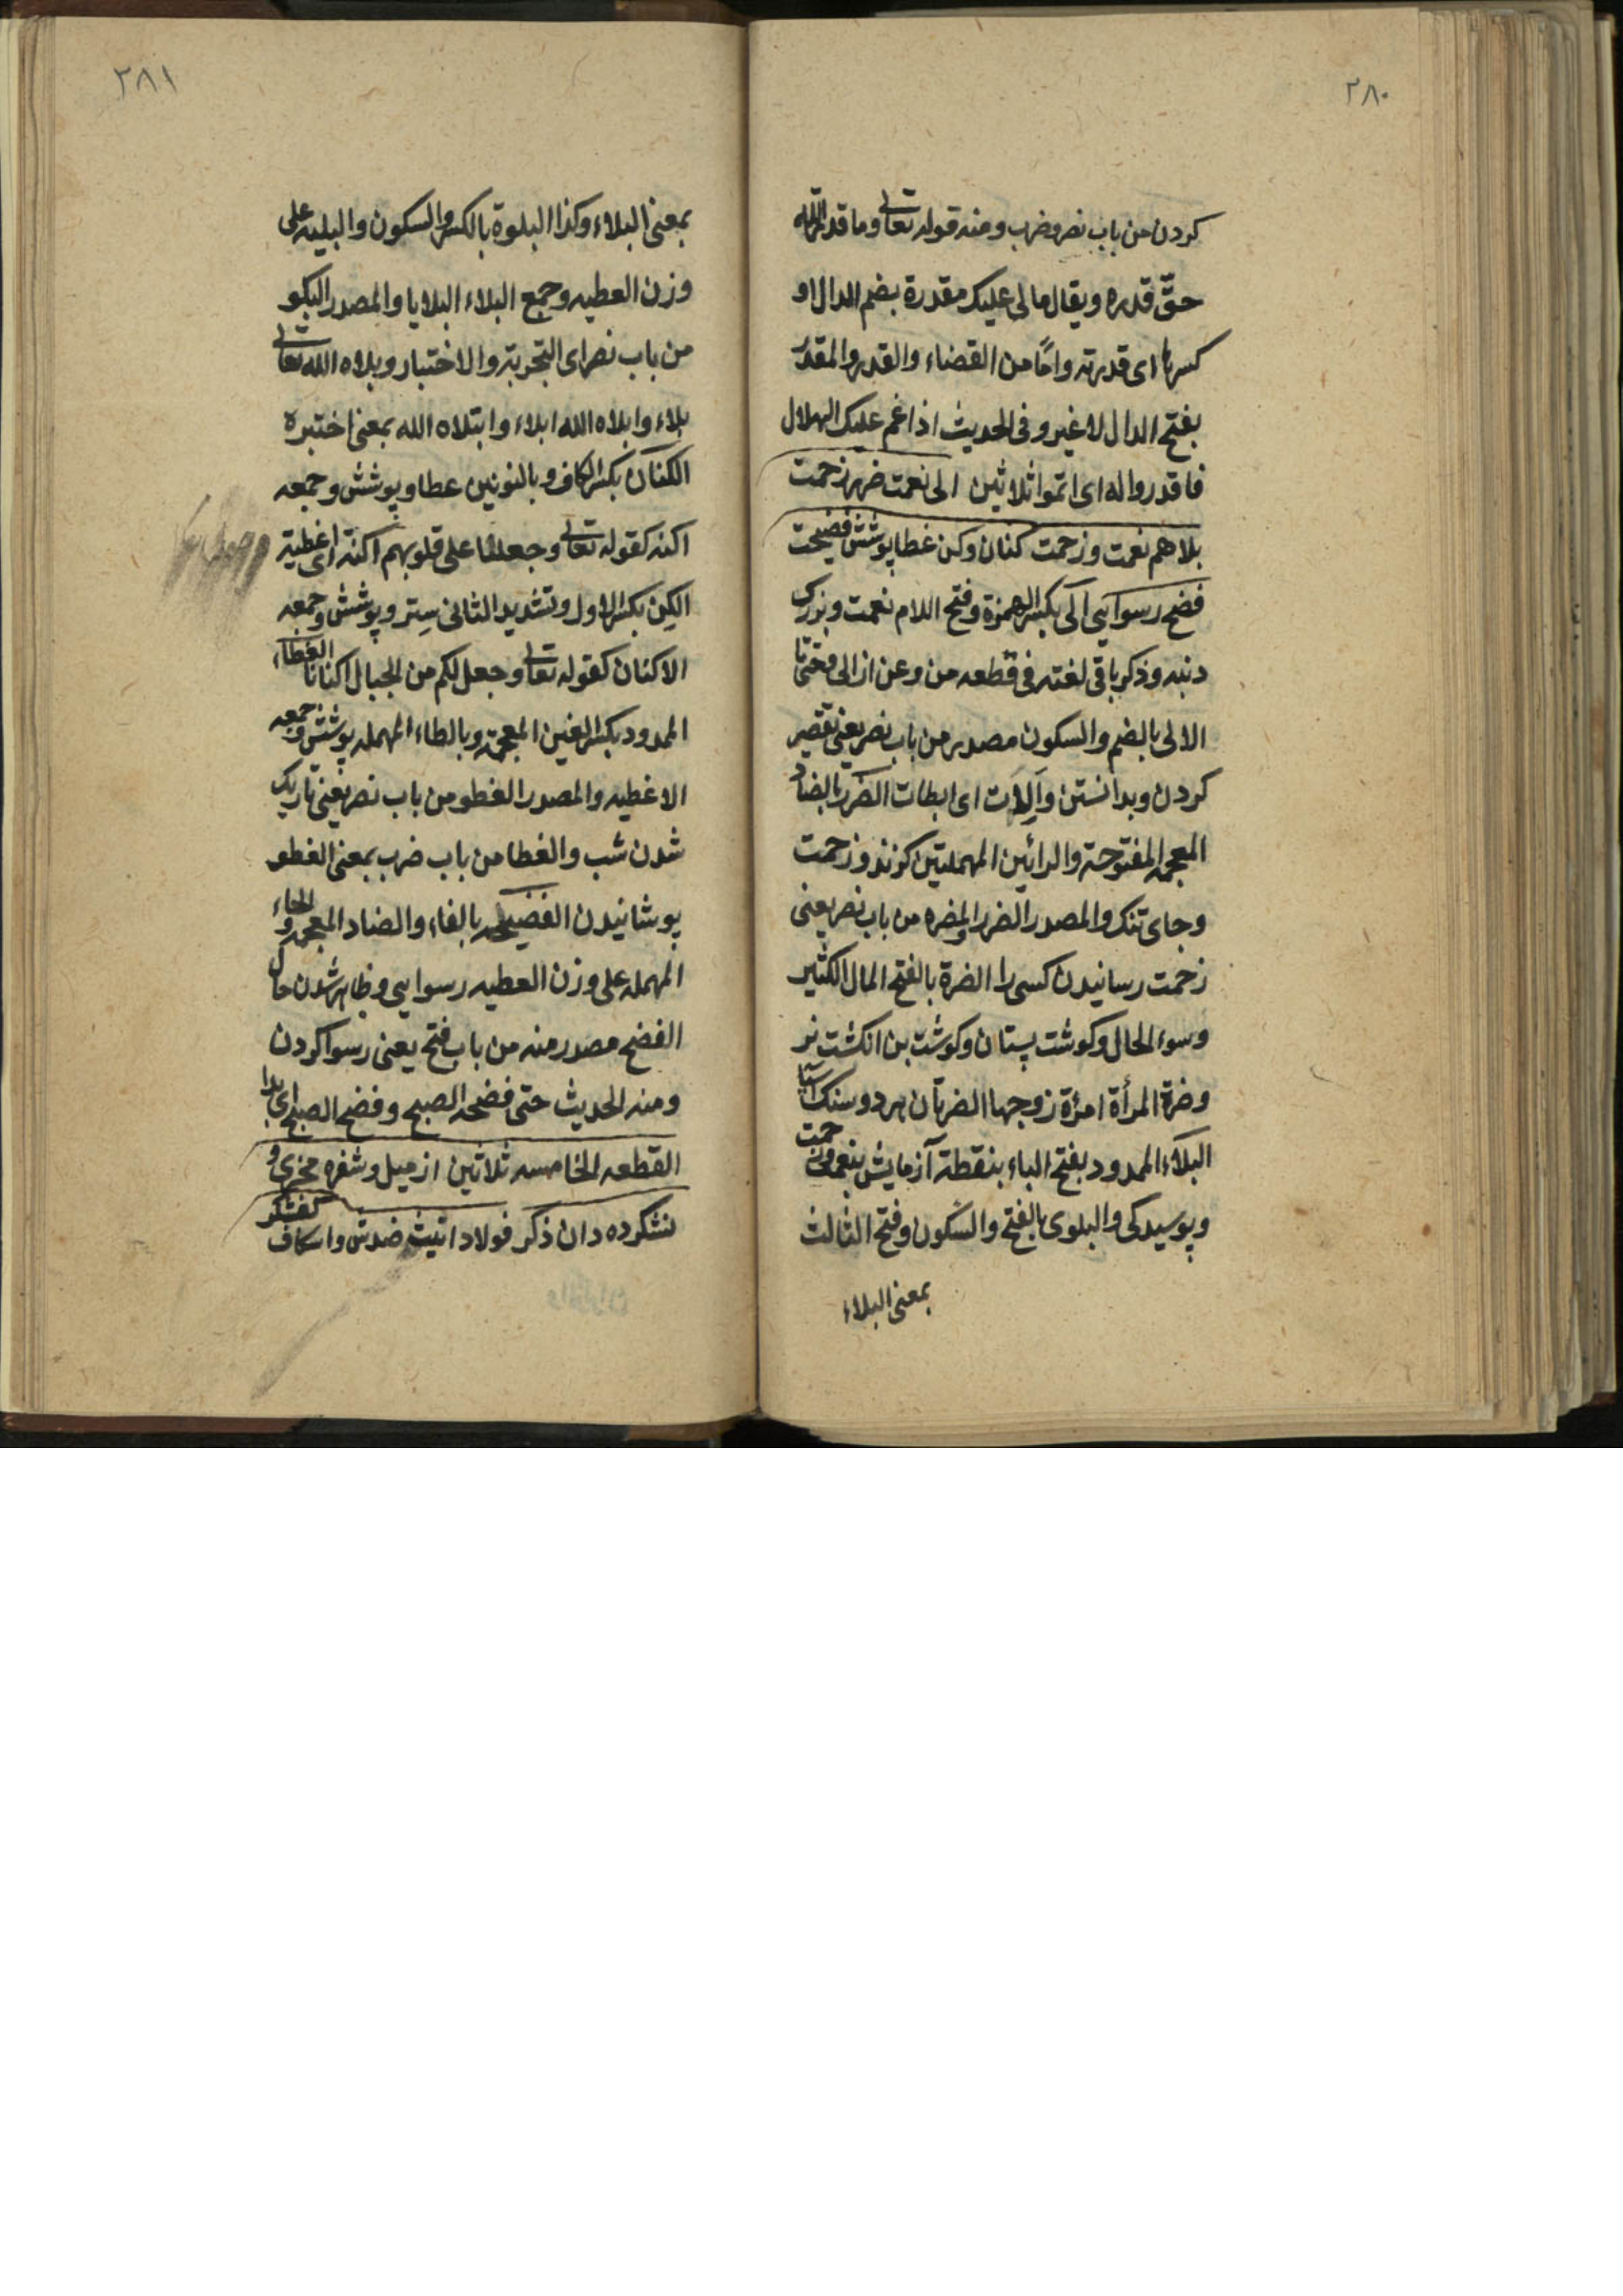 ٢٨٠
كردن من باب نصر وضرب ومنه قوله تعالى وما قدروا الله
حقّ قدره ويقال مالى عليك مقدرة بضم الدال او
كسرها اى قدرته وامّا من القضاء والقدر والمقدر
بفتح الدال لا غير وفى الحديث اذا غم عليك الهلال
فاقدروا له اى اتموا ثلاثين الى نعمت ضرر زحمت
بلا هم نعمت وزحمت كنان وكن غطا پوشش فضيحت
فضح رسوايى الى بكسر الهمزة وفتح اللام نعمت وبزرك
دنبه وذكر باقى لغته فى قطعه من وعن از الى وحتى تا
الالى بالضم والسكون مصدر من باب نصر يعنى تقصير
كردن وبدانستن واَلِاَت اى ابطات الضرر بالضاد
المعجمه المفتوحة والرائين المهملتين كزند وزحمت
وجاى تنك والمصدر الضرر والمضره من باب نصر يعنى
زحمت رسانيدن كسى را الضرة بالفتح المال الكثير
وسوء الحال وكوشت پستان وكوشت بن انكشت نر
وضرة المرأة امرٔة زوجها الضرتان هر دو سنك آسيا
البلاء الممدود بفتح الباء بنقطة آزمايش بنعمت وزحمت
وپوسيدكى والبلوى بالفتح والسكون وفتح الثالث
بمعنى البلاء
٢٨١
بمعنى البلاء وكذا البلوة بالكسر والسكون والبليه على
وزن العطيه وجمع البلاء البلايا والمصدر البلو
من باب نصر اى التجربة والاختبار وبلاه الله تعالى
بلاء وابلاه الله ابلاء وابتلاه الله بمعنى اختبره
الكنان بكسر الكاف وبالنونين غطا وپوشش وجمعه
اكنه كقوله تعالى وجعلنا على قلوبهم اكنة اى اغطية
الكِن بكسر الاول وتشديد الثانى سِتر وپوشش وجمعه
الاكنان كقوله تعالى وجعل لكم من الجبال اكنانا الغطاء
الممدود بكسر الغين المعجمة وبالطاء المهمله پوشش وجمعه
الاغطيه والمصدر الغطو من باب نصر يعنى تاريك
شدن شب والغطا من باب ضرب بمعنى الغطو
پوشانيدن الفضيحه بالفاء والضاد المعجمه والحاء
المهمله على وزن العطيه رسوايى وظاهر شدن حال
الفضح مصدر منه من باب فتح يعنى رسوا كردن
ومنه الحديث حتى فضحه الصبح وفضح الصبح اى بدا
القطعه الخامسه ثلاثين ازميل وشفره مخزى و
نشكرده دان ذكر فولاد انيث ضدش واسكاف كفشكر